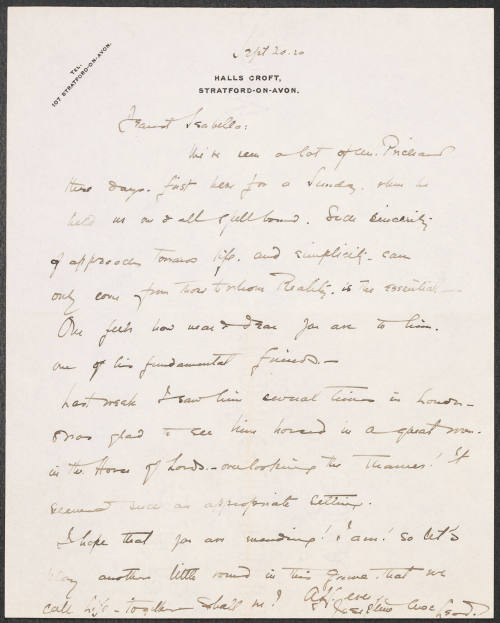 TEL.
107 STRATFORD-ON-AVON.
Sept 20. 20
HALLS CROFT,
STRATFORD-ON-AVON.
Dearest Isabella:
We've seen a lot of Mr. Prichard
these days. first here for a Sunday. when he
held us one & all spellbound. Such sincerity
of approach towards life. and simplicity. can
only come from those to whom Reality. is the essential—
One feels how near & dear you are to him.
one of his fundamental friends.—
Last week I saw him several times in London—
& was glad to see him housed in a great room
in the House of Lords.—overlooking the Thames! It
seemed such an appropriate setting.
I hope that you are mending! I am! so let's
play another little round in this game that we
call life—together shall we? All love